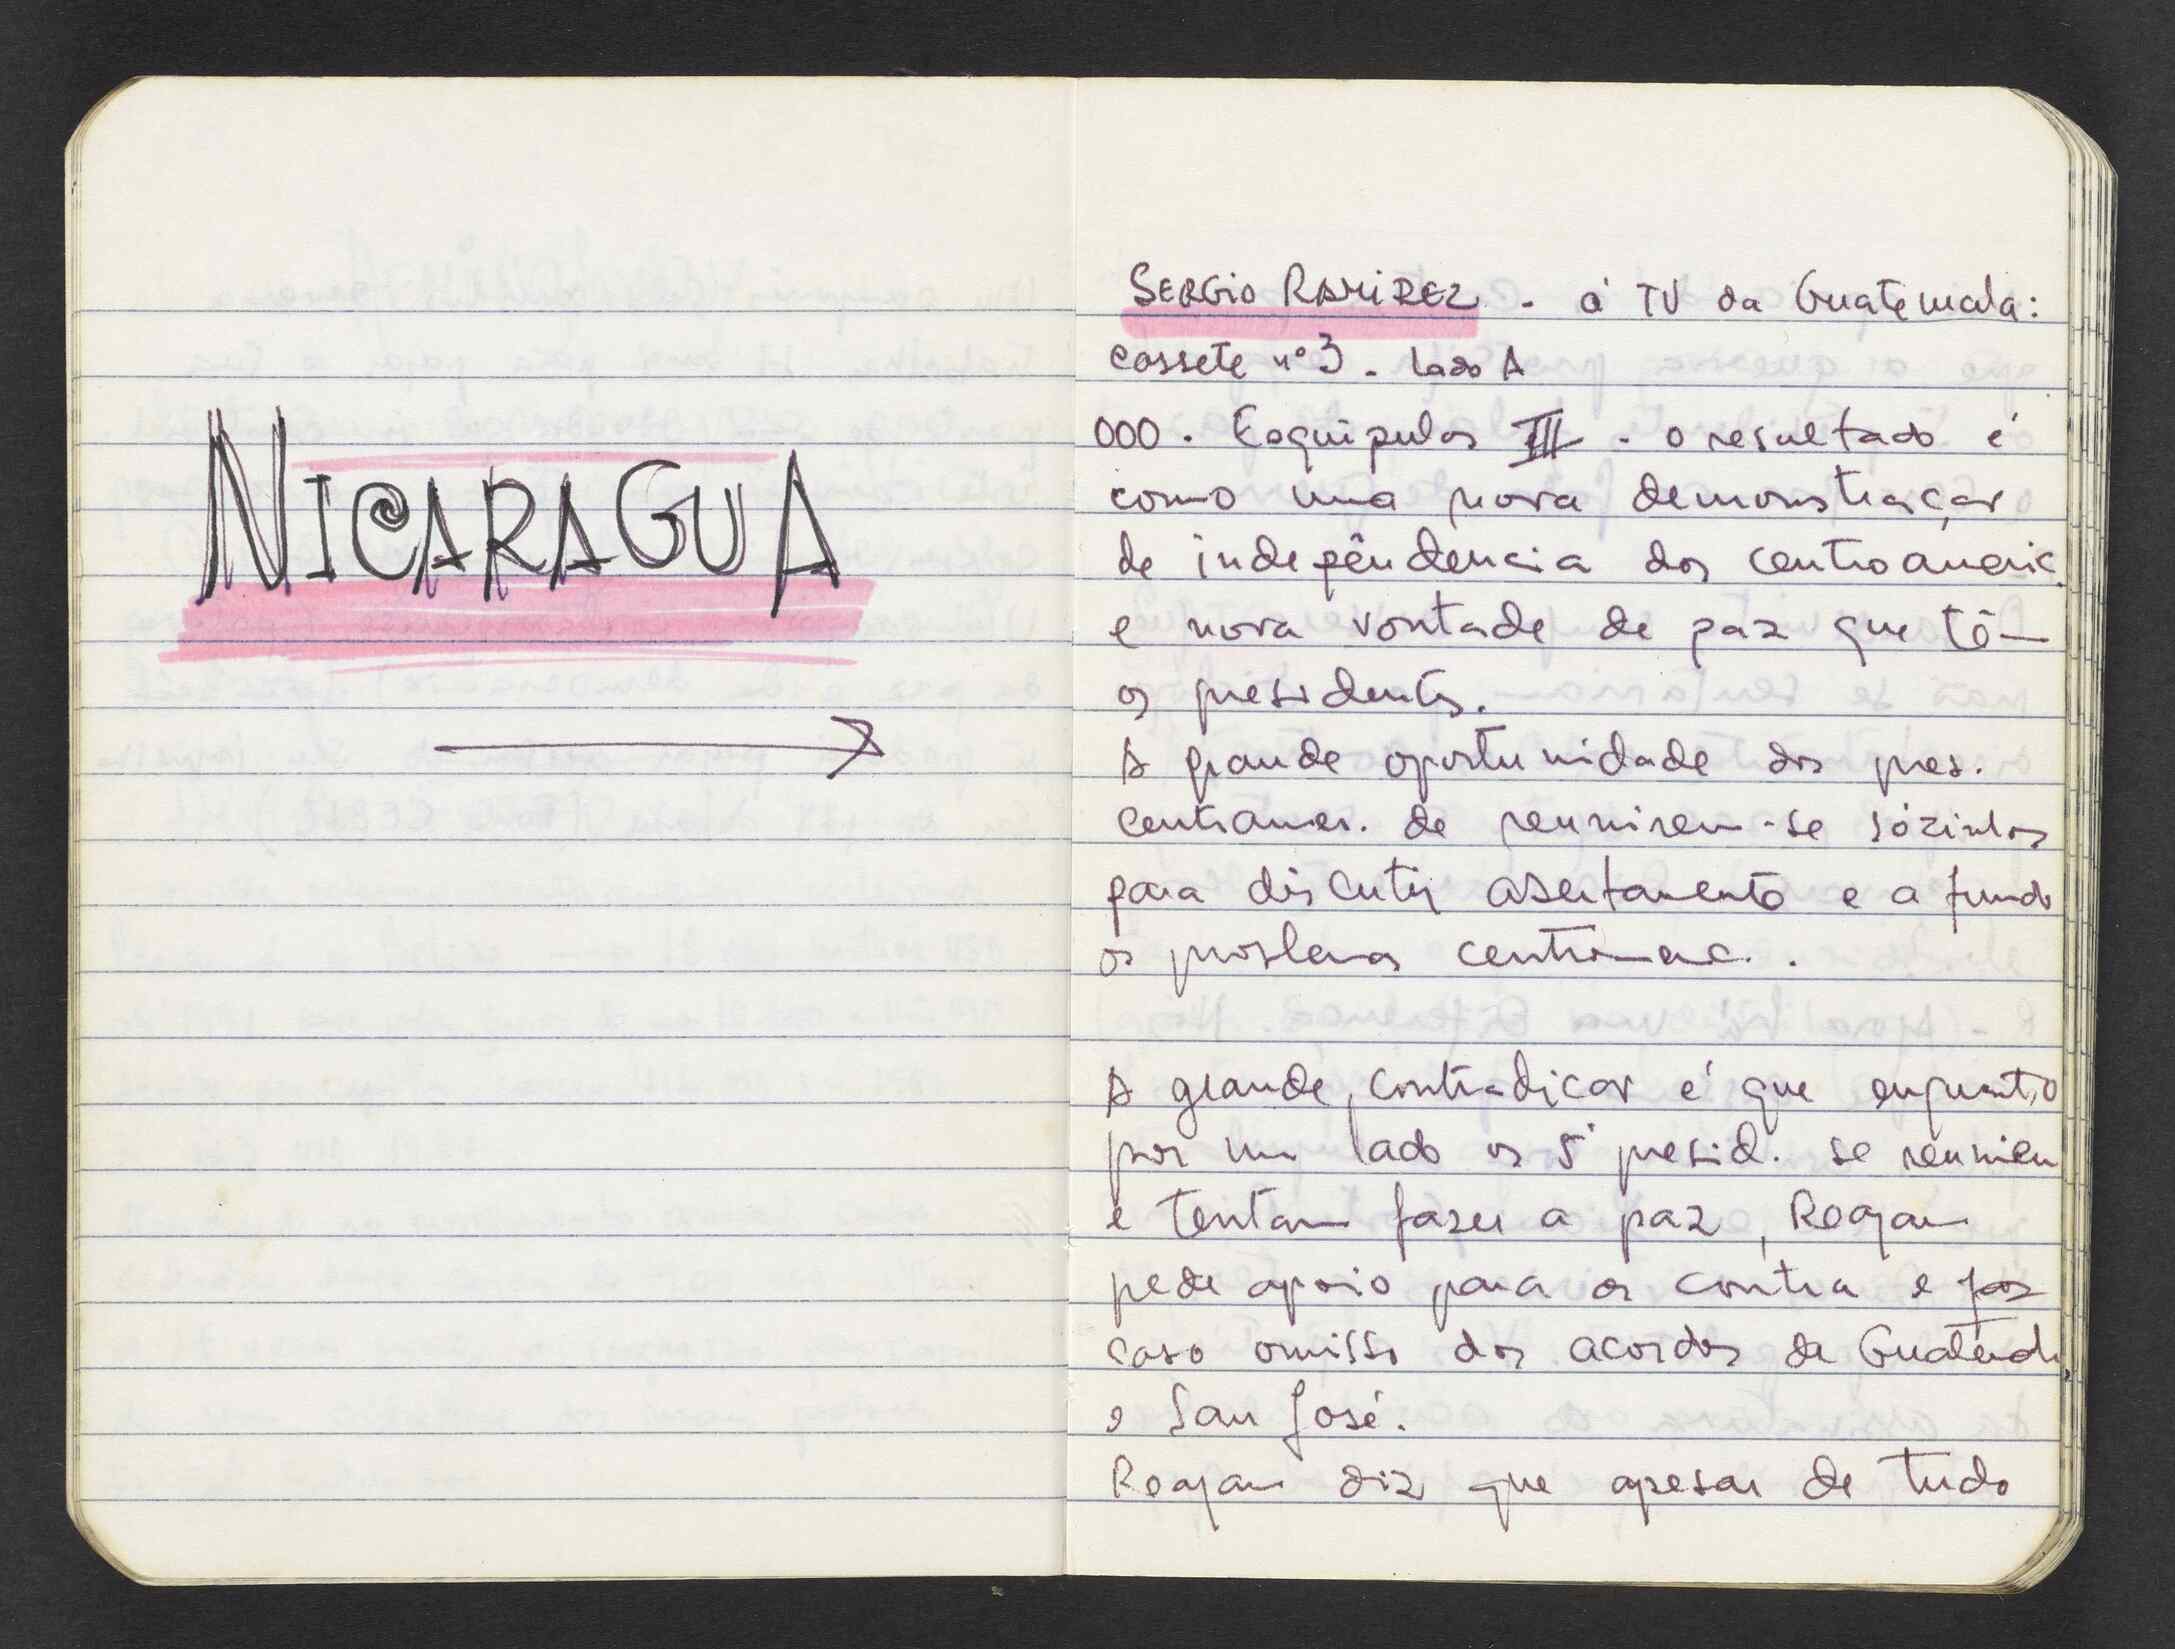 NICARAGUA
SERGIO RAMIREZ - à TV da Guatemala:
cassete nº 3 - lado A
000. Esquipulas III - o resultado é
como uma nova demonstraçar
de indepêndencia dos centroameric.
e nova vontade de paz que tê
os presidentes.
A grande oportunidade dos pres.
centroamer. de reunirem-se sózinhos
para discutir abertamente e a fundo
os problemas
A grande contradiçar é que enquanto
por um lado os 5 presid. se reuniem
e tentam fazer a paz, Reagan
pede apoio para os contra e faz
caso omisso dos acordos da Guatemala
e San José.
Reagan diz que apesar de tudo